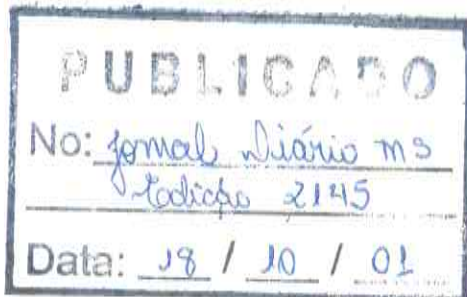 PUBLICADO
No: Jornal Diário MS
Edição 2145
Data: 18 / 10 / 01